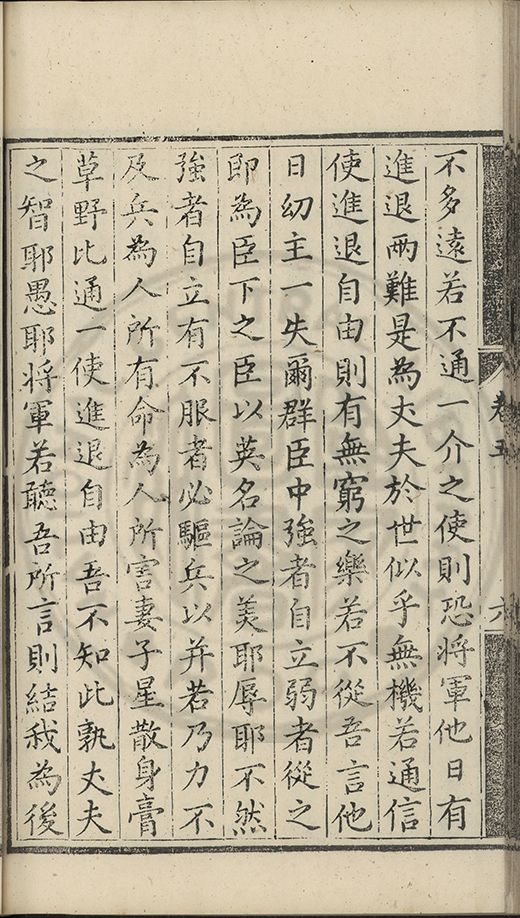 卷五
六
不多遠若不通一介之使則恐將軍他日有
進退兩難是為丈夫於世似乎無機若通信
使進退自由則有無窮之樂若不從吾言他
日幼主一失爾群臣中強者自立弱者從之
即為臣下之臣以英名論之美耶辱耶不然
強者自立有不服者必驅兵以并若乃力不
及兵為人所有命為人所害妻子星散身膏
草野比通一使進退自由吾不知此孰丈夫
之智耶愚耶將軍若聽吾所言則結我為後